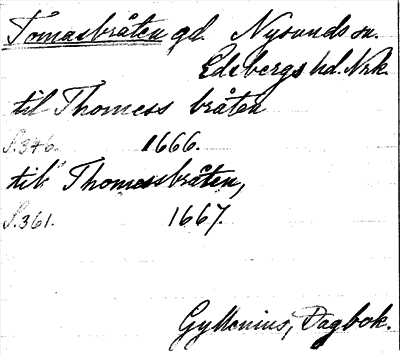 Tomasbråten gd. Nysunds sn.
Edsbergs hd. Nrk.
til Thomess bråten
S.346. 1666.
till Thomessbråten,
S.361. 1667.
Gyllenius, Dagbok.